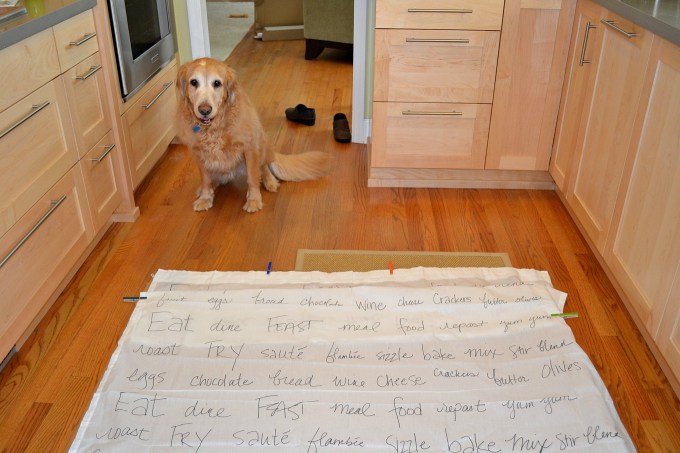 fruit eggs bread chocolate wine cheese Crackers butter olives
Eat dine FEAST meal food repast yum yum
roast FRY sauté flambée sizzle bake mix stir blend
eggs chocolate bread wine cheese crackers butter olives
Eat dine FEAST meal food repast yum yum
roast FRY sauté flambée sizzle bake mix stir blend